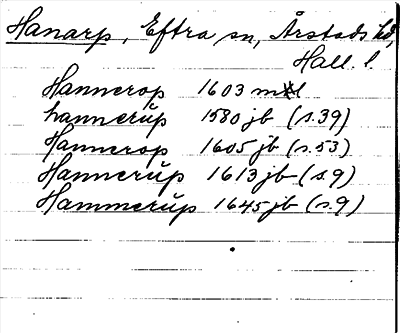 Hanarp, Eftra sn, Årstads hd,
Hall. l.
Hannerop 1603 mtl
hannerŭp 1580 jb (s.39)
Hannerop 1605 jb (s.53)
Hannerŭp 1613 jb (s.9)
Hammerŭp 1645 jb (s.9)